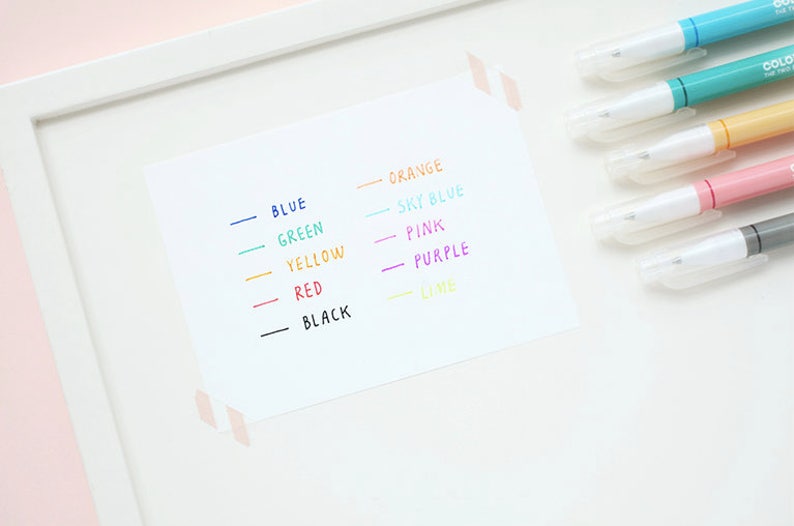 BLUE
GREEN
YELLOW
RED
BLACK
ORANGE
SKY BLUE
PINK
PURPLE
LIME
COLO
COLO
THE TRIO